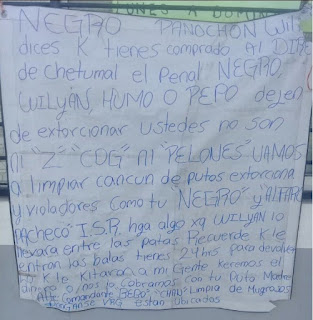 LUNES A DOMIN
NEGRO PANOCHON WIL
dices K tienes comprado Al DIRE
de Chetumal el Penal NEGRO,
WILYAN, HUMO O PEPO dejen
de extorcionar ustedes no son
ni "Z" "CDG" Ni "PELONES" VAMOS
a limpiar cancun de putos extorciona
y violadores como tu NEGRO y "ALFARO
Pacheco" I.S.P. hga algo xq WILYAN lo
llevara entre las patas Recuerde K le
entran las balas tienes 24 hrs para devolver
lo K le Kitaron a mi Gente Keremos el
dinero o nos lo cobramos con tu Puta Madre
ATTE Comandante "BETO" "CHAN" Limpia de Mugrosos
estan ubicados